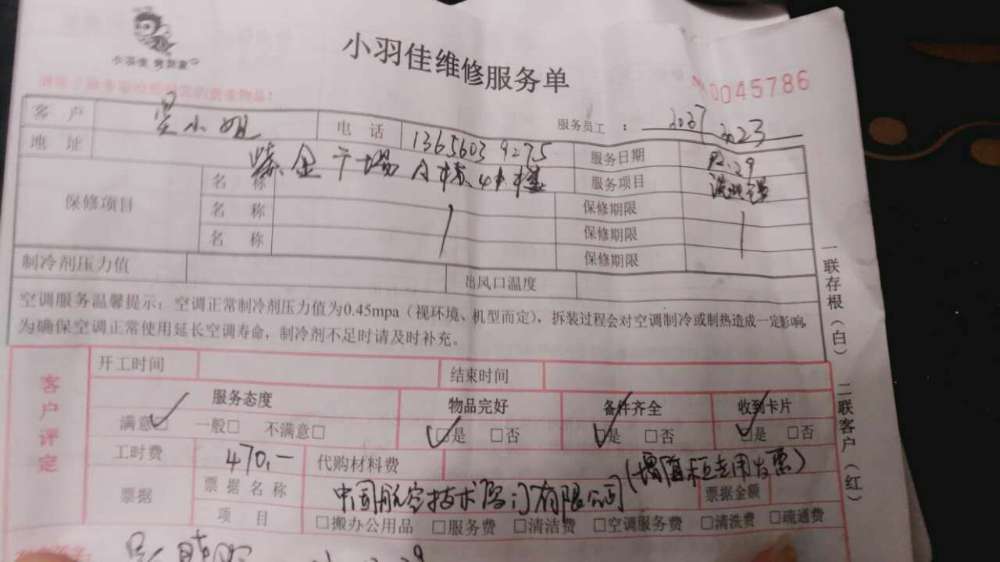 小羽佳 劳动家
小羽佳维修服务单
0045786
客户 吴小姐 电话 13656039275 服务员工：2027 2023
地址 紫金广场A栋、41楼 服务日期 12.29
保修项目 名称 服务项目
名称 保修期限
名称 保修期限
保修期限
制冷剂压力值 出风口温度
空调服务温馨提示：空调正常制冷剂压力值为0.45mpa（视环境、机型而定），拆装过程会对空调制冷或制热造成一定影响，
为确保空调正常使用延长空调寿命，制冷剂不足时请及时补充。
一联存根（白） 二联客户（红）
客户评定
开工时间 结束时间
服务态度 物品完好 备件齐全 收到卡片
满意□ 一般□ 不满意□ □是 □否 □是 □否 □是 □否
工时费 470.- 代购材料费 (增值税专用发票)
票据 票据名称 中国航空技术厦门有限公司 票据金额
项目 □搬办公用品 □服务费 □清洁费 □空调服务费 □清洗费 □疏通费